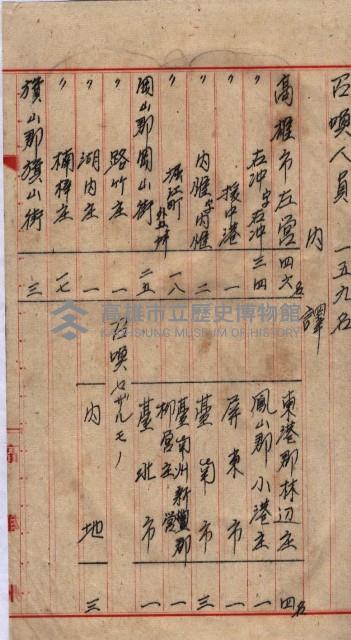 召喚人員 一五九名
內譯
高雄市左営 四六名
〃 右冲字右冲 三四
〃 援中港 一
〃 內惟字內惟 二
〃 湊江町 外五町 一八
岡山郡岡山街 二五
〃 路竹庄 一
〃 湖內庄 一
〃 楠梓庄 一七
旗山郡旗山街 三
東港郡林辺庄 四名
鳳山郡小港庄 一
屏東市 一
臺南市 三
臺南州新營郡
柳営庄 一
臺北市 一
召喚セザルモノ
內地 三
高雄市立歷史博物館
KAOHSIUNG MUSEUM OF HISTORY